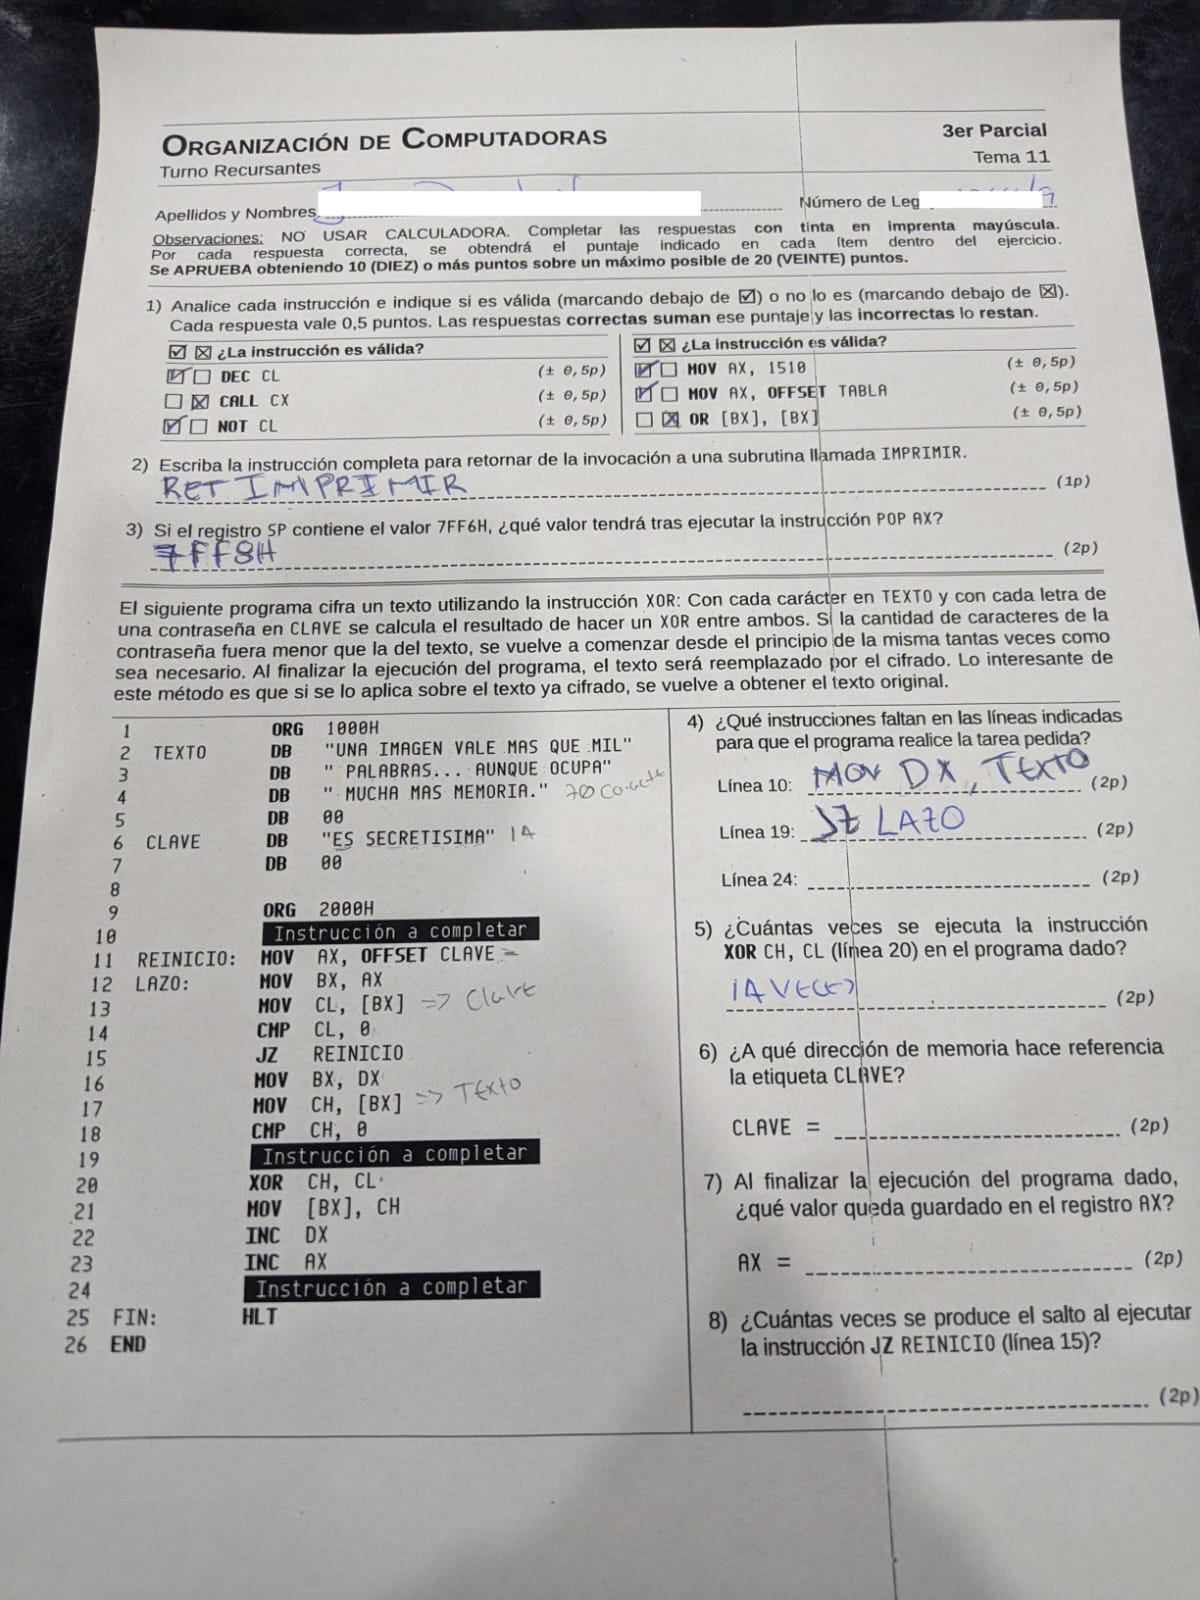 ORGANIZACIÓN DE COMPUTADORAS
3er Parcial
Turno Recursantes
Tema 11
Apellidos y Nombres
Número de Leg
Observaciones: NO USAR CALCULADORA. Completar las respuestas con tinta en imprenta mayúscula.
Por cada respuesta correcta, se obtendrá el puntaje indicado en cada ítem dentro del ejercicio.
Se APRUEBA obteniendo 10 (DIEZ) o más puntos sobre un máximo posible de 20 (VEINTE) puntos.
1) Analice cada instrucción e indique si es válida (marcando debajo de ☑) o no lo es (marcando debajo de ☒).
Cada respuesta vale 0,5 puntos. Las respuestas correctas suman ese puntaje y las incorrectas lo restan.
☑ ☒ ¿La instrucción es válida?
☑ ☐ DEC CL (± 0,5p)
☐ ☒ CALL CX (± 0,5p)
☑ ☐ NOT CL (± 0,5p)
☑ ☒ ¿La instrucción es válida?
☑ ☐ MOV AX, 1510 (± 0,5p)
☑ ☐ MOV AX, OFFSET TABLA (± 0,5p)
☐ ☒ OR [BX], [BX] (± 0,5p)
2) Escriba la instrucción completa para retornar de la invocación a una subrutina llamada IMPRIMIR.
RET IMPRIMIR (1p)
3) Si el registro SP contiene el valor 7FF6H, ¿qué valor tendrá tras ejecutar la instrucción POP AX?
7FF8H (2p)
El siguiente programa cifra un texto utilizando la instrucción XOR: Con cada carácter en TEXTO y con cada letra de
una contraseña en CLAVE se calcula el resultado de hacer un XOR entre ambos. Si la cantidad de caracteres de la
contraseña fuera menor que la del texto, se vuelve a comenzar desde el principio de la misma tantas veces como
sea necesario. Al finalizar la ejecución del programa, el texto será reemplazado por el cifrado. Lo interesante de
este método es que si se lo aplica sobre el texto ya cifrado, se vuelve a obtener el texto original.
1 ORG 1000H
2 TEXTO DB "UNA IMAGEN VALE MAS QUE MIL"
3 DB " PALABRAS... AUNQUE OCUPA"
4 DB " MUCHA MAS MEMORIA." 70
5 DB 00
6 CLAVE DB "ES SECRETISIMA" 14
7 DB 00
8
9 ORG 2000H
10 Instrucción a completar
11 REINICIO: MOV AX, OFFSET CLAVE
12 LAZO: MOV BX, AX
13 MOV CL, [BX] => Clave
14 CMP CL, 0
15 JZ REINICIO
16 MOV BX, DX
17 MOV CH, [BX] => TEXTO
18 CMP CH, 0
19 Instrucción a completar
20 XOR CH, CL
21 MOV [BX], CH
22 INC DX
23 INC AX
24 Instrucción a completar
25 FIN: HLT
26 END
4) ¿Qué instrucciones faltan en las líneas indicadas
para que el programa realice la tarea pedida?
Línea 10: MOV DX, TEXTO (2p)
Línea 19: JZ LAZO (2p)
Línea 24: (2p)
5) ¿Cuántas veces se ejecuta la instrucción
XOR CH, CL (línea 20) en el programa dado?
14 VECES (2p)
6) ¿A qué dirección de memoria hace referencia
la etiqueta CLAVE?
CLAVE = (2p)
7) Al finalizar la ejecución del programa dado,
¿qué valor queda guardado en el registro AX?
AX = (2p)
8) ¿Cuántas veces se produce el salto al ejecutar
la instrucción JZ REINICIO (línea 15)?
(2p)